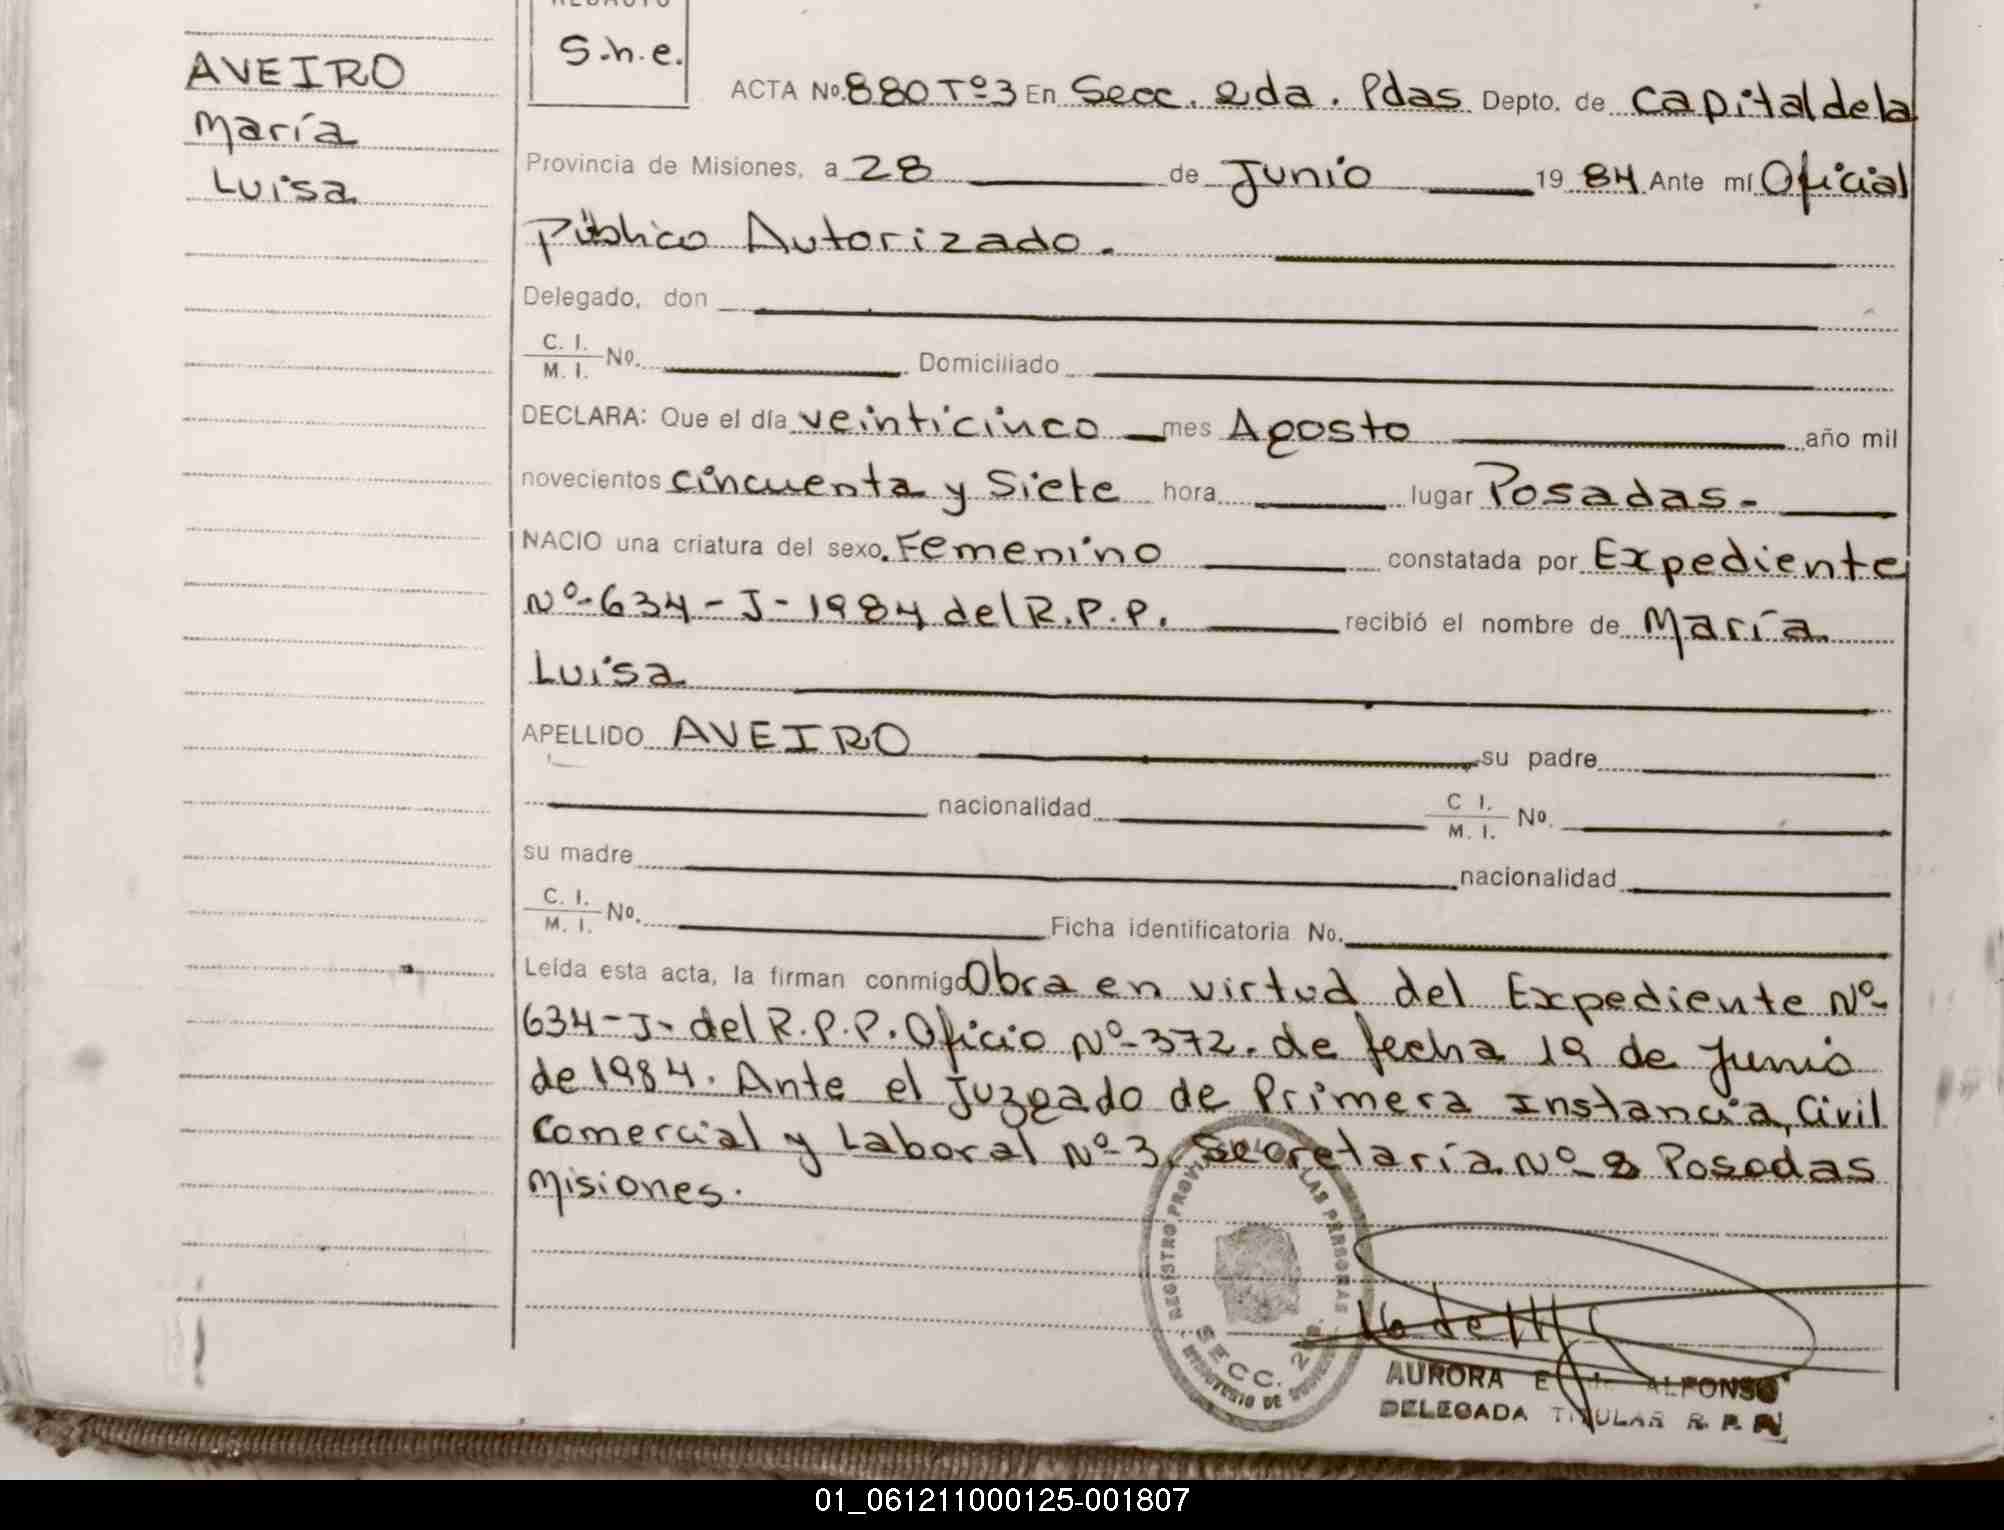 REDACTO
S.h.e.
AVEIRO
María
Luisa
ACTA Nº. 880 Tº 3 En Secc. 2da. Pdas Depto. de Capital de la
Provincia de Misiones, a 28 de Junio 19 84 Ante mí Oficial
Público Autorizado.
Delegado, don
C. I.
M. I. Nº. Domiciliado
DECLARA: Que el día veinticinco mes Agosto año mil
novecientos cincuenta y Siete hora lugar Posadas.
NACIO una criatura del sexo. Femenino constatada por Expediente
Nº-634-J-1984 del R.P.P. recibió el nombre de María
Luisa
APELLIDO AVEIRO su padre
nacionalidad C I.
M. I. Nº.
su madre nacionalidad
C. I.
M. I. Nº. Ficha identificatoria No.
Leída esta acta, la firman conmigo Obra en virtud del Expediente Nº-
634-J- del R.P.P. Oficio Nº-372. de fecha 19 de Junio
de 1984. Ante el Juzgado de Primera Instancia, Civil
Comercial y Laboral Nº-3, Secretaría Nº-8 Posadas
Misiones.
REGISTRO PROV. LAS PERSONAS
SECC. 2
AURORA E ALFONSO
DELEGADA TITULAR R. P. P.
01_061211000125-001807